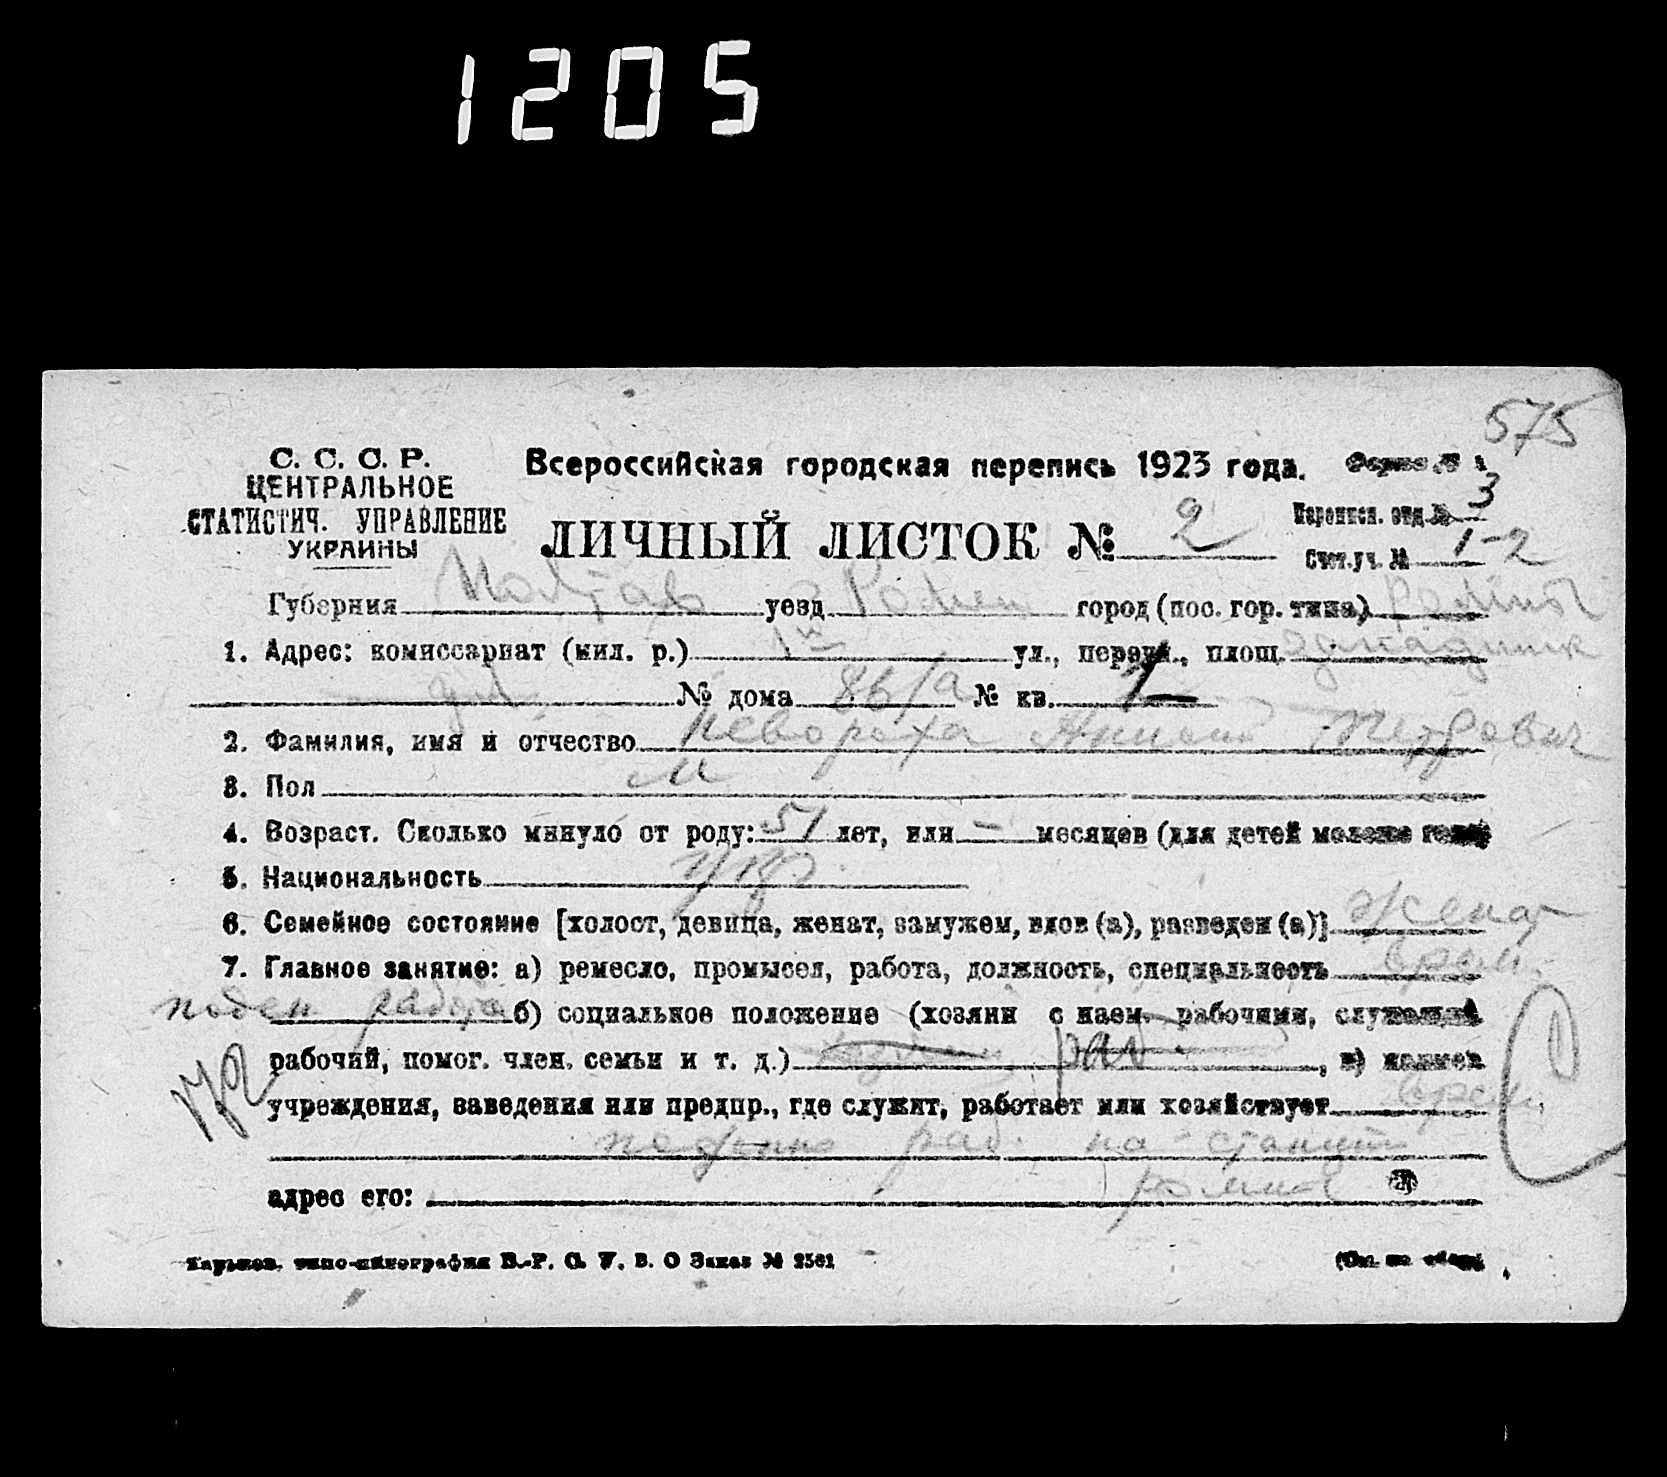 1205
575
С. С. С. Р.
ЦЕНТРАЛЬНОЕ
СТАТИСТИЧ. УПРАВЛЕНИЕ
УКРАИНЫ
Всероссийская городская перепись 1923 года. Форма № 1
ЛИЧНЫЙ ЛИСТОК № 2
Переписн. отд. № 3
Счет. уч. № 1-2
Губерния Полтав уезд Ромен город (пос. гор. типа)
1. Адрес: комиссариат (мил. р.) 1й ул., переул., площ.
№ дома 86/а № кв. 1
2. Фамилия, имя и отчество Петрович
3. Пол м
4. Возраст. Сколько минуло от роду: 51 лет, или - месяцев (для детей моложе года)
5. Национальность укр.
6. Семейное состояние [холост, девица, женат, замужем, вдов (а), разведен (а)] женат
7. Главное занятие: а) ремесло, промысел, работа, должность, специальность врем.
поден работа б) социальное положение (хозяин с наем. рабочими, служащий
рабочий, помог. член. семьи и т. д.) раб. , в)
учреждения, заведения или предпр., где служит, работает или хозяйствует врем.
раб. на станции
адрес его:
Харьков. типо-литография В.-Р. С. У. В. О Заказ № 2561